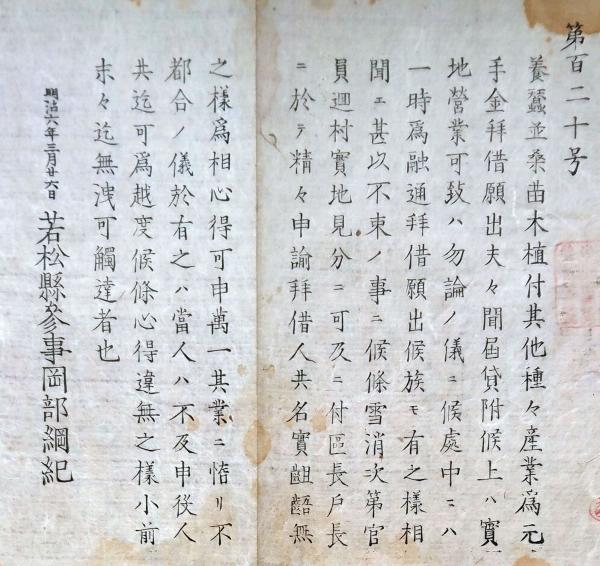 第百二十号
養蠶並桑苗木植付其他種々産業爲元
手金拜借願出夫々聞届貸附候上ハ實
地營業可致ハ勿論ノ儀ニ候處中ニハ
一時爲融通拜借願出候族モ有之様相
聞エ甚以不束ノ事ニ候條雪消次第官
員廽村實地見分ニ可及ニ付區長戸長
ニ於テ精々申諭拜借人共名實齟齬無
之様爲相心得可申萬一其業ニ惰リ不
都合ノ儀於有之ハ當人ハ不及申役人
共迄可爲越度候條心得違無之様小前
末々迄無洩可觸達者也
明治六年三月廿六日 若松縣參事岡部綱紀